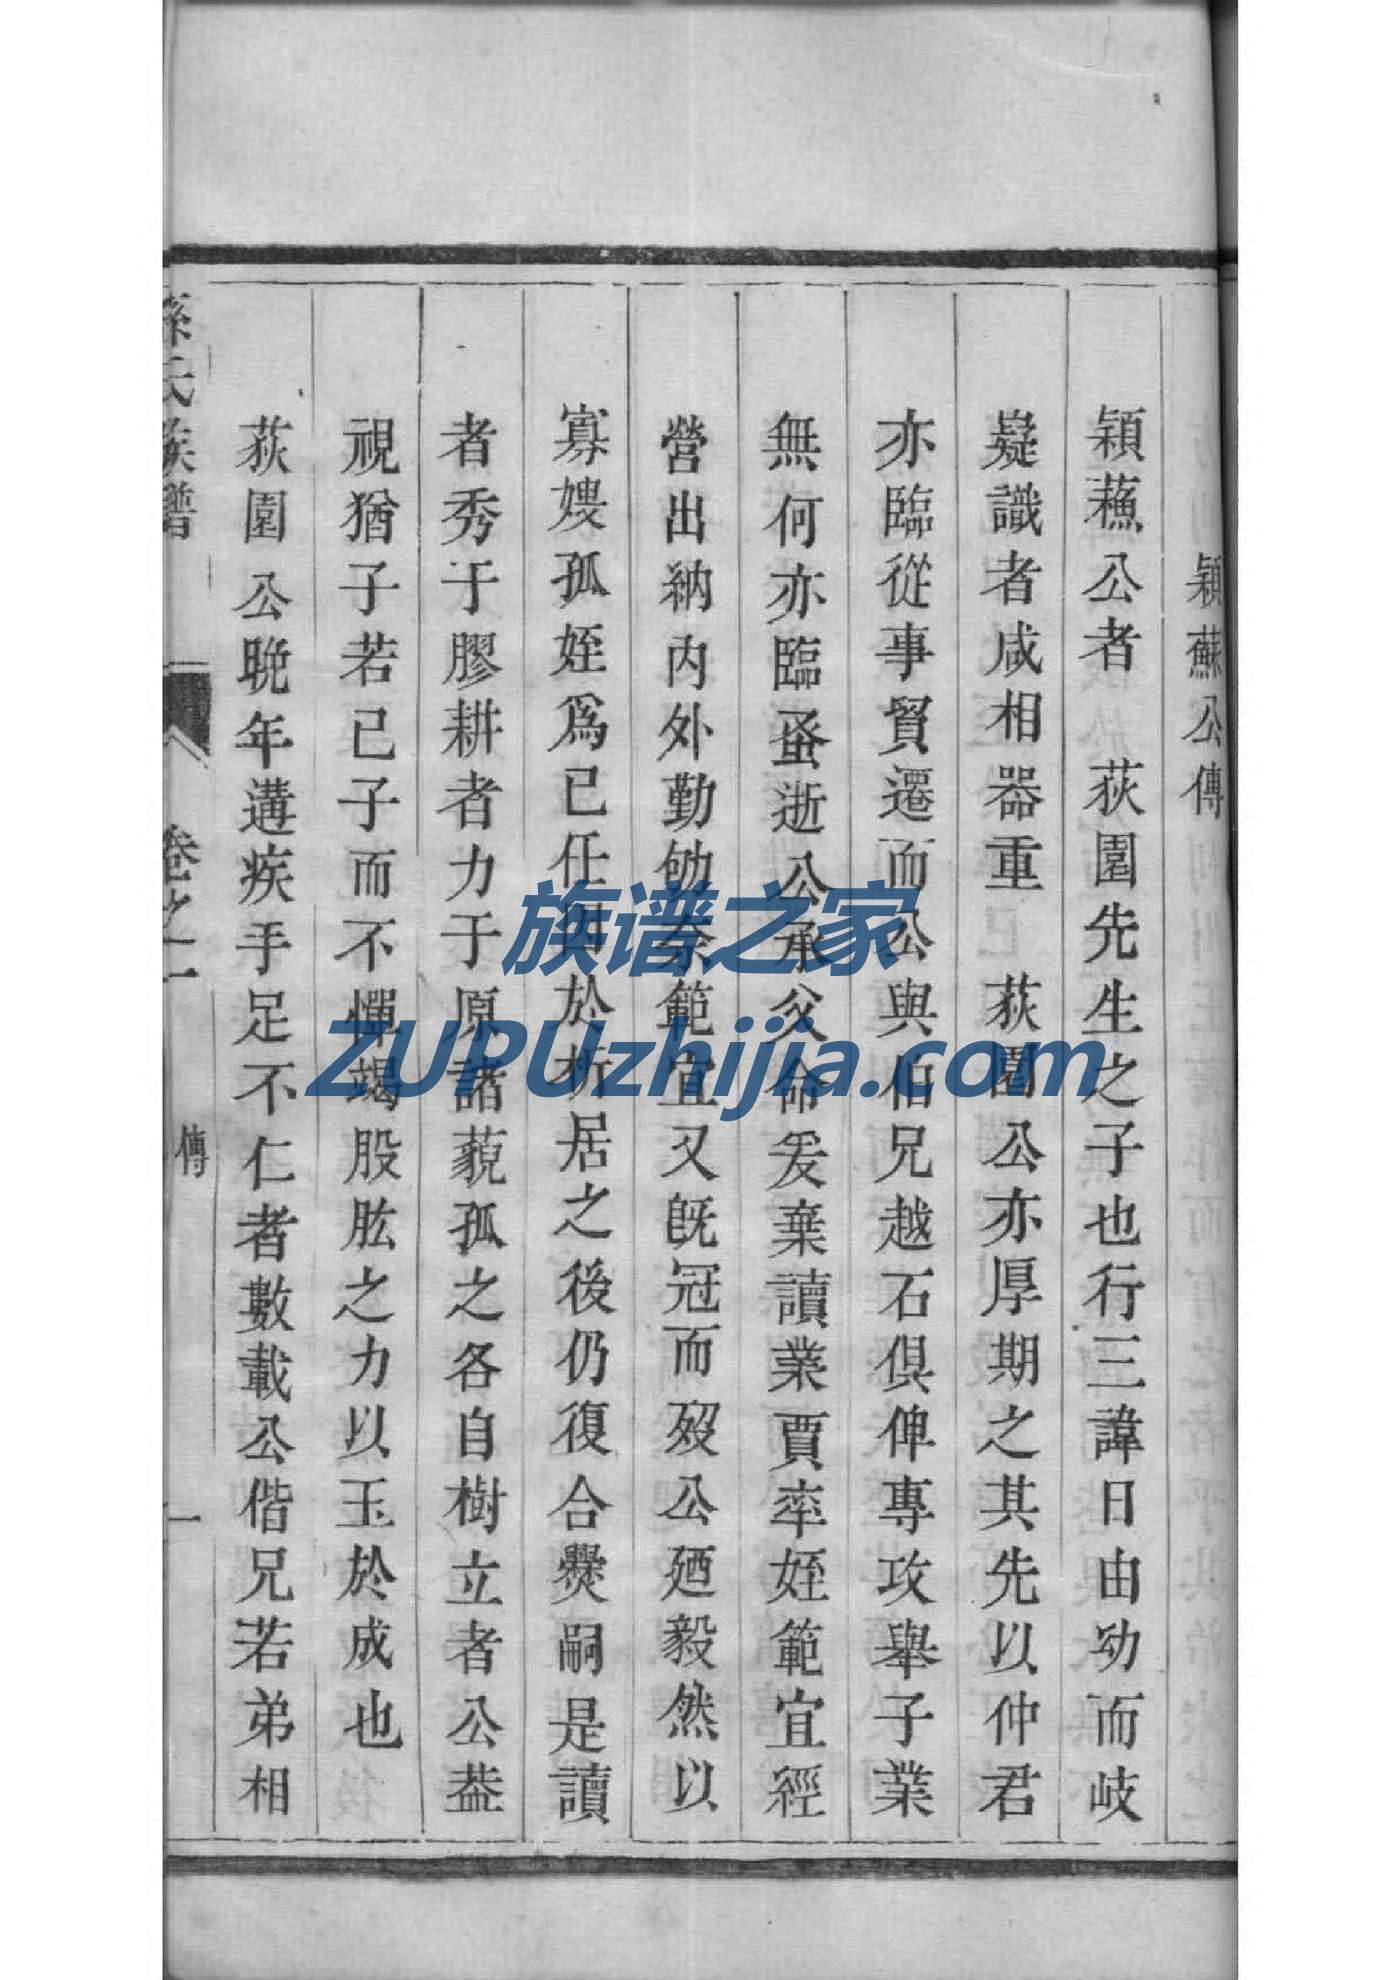 穎蘇公傳
穎蘓公者 荻園先生之子也行三諱日由幼而岐
嶷識者咸相器重 荻園公亦厚期之其先以仲君
亦臨從事貿遷而公與伯兄越石俱俾專攻舉子業
無何亦臨蚤逝公承父命爰棄讀業賈率姪範宜經
營出納内外勤劬奈範宜又旣冠而歿公廼毅然以
寡嫂孤姪爲已任因於析居之後仍復合爨嗣是讀
者秀于膠耕者力于原諸藐孤之各自樹立者公葢
視猶子若已子而不憚竭股肱之力以玉於成也
荻園公晩年遘疾手足不仁者數載公偕兄若弟相
孫氏族譜
卷之一
傳
一
族谱之家
ZUPUzhijia.com